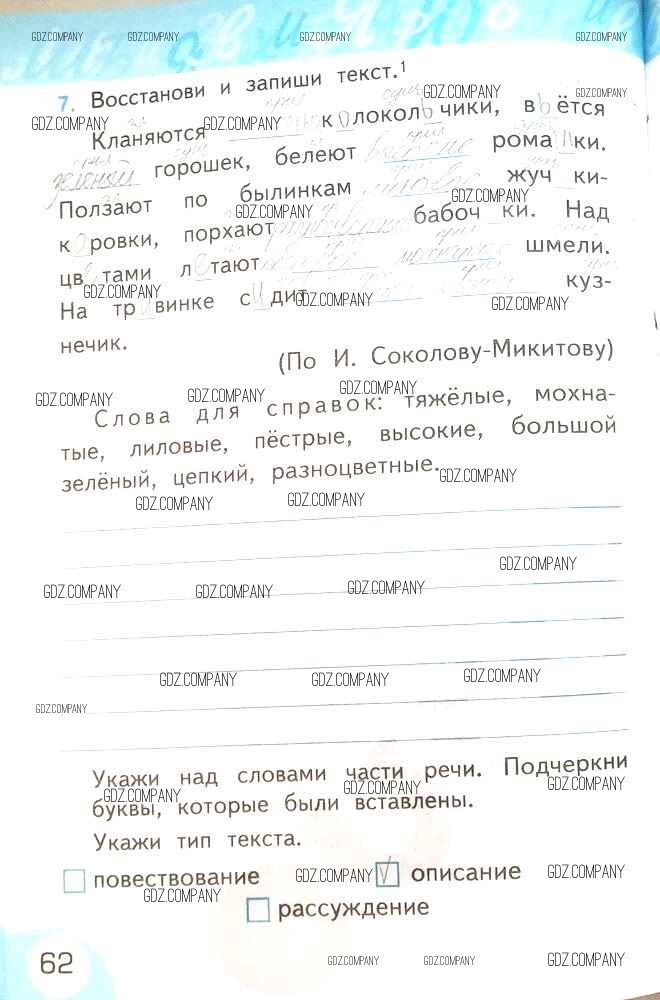 GDZ.COMPANY GDZ.COMPANY GDZ.COMPANY GDZ.COMPANY
7. Восстанови и запиши текст.¹
GDZ.COMPANY GDZ.COMPANY
GDZ.COMPANY GDZ.COMPANY
Кланяются колокольчики, вьётся
зелёный горошек, белеют высокие ромашки.
Ползают по былинкам лиловые жуч ки-
GDZ.COMPANY GDZ.COMPANY
коровки, порхают бабоч ки. Над
цветами летают мохнатые шмели.
GDZ.COMPANY GDZ.COMPANY GDZ.COMPANY
На травинке сидит куз-
нечик.
(По И. Соколову-Микитову)
GDZ.COMPANY GDZ.COMPANY GDZ.COMPANY
Слова для справок: тяжёлые, мохна-
тые, лиловые, пёстрые, высокие, большой
зелёный, цепкий, разноцветные.
GDZ.COMPANY
GDZ.COMPANY GDZ.COMPANY
GDZ.COMPANY
GDZ.COMPANY GDZ.COMPANY GDZ.COMPANY
GDZ.COMPANY GDZ.COMPANY GDZ.COMPANY
GDZ.COMPANY
Укажи над словами части речи. Подчеркни
GDZ.COMPANY GDZ.COMPANY GDZ.COMPANY
буквы, которые были вставлены.
Укажи тип текста.
повествование GDZ.COMPANY V описание GDZ.COMPANY
GDZ.COMPANY
рассуждение
62
GDZ.COMPANY GDZ.COMPANY GDZ.COMPANY